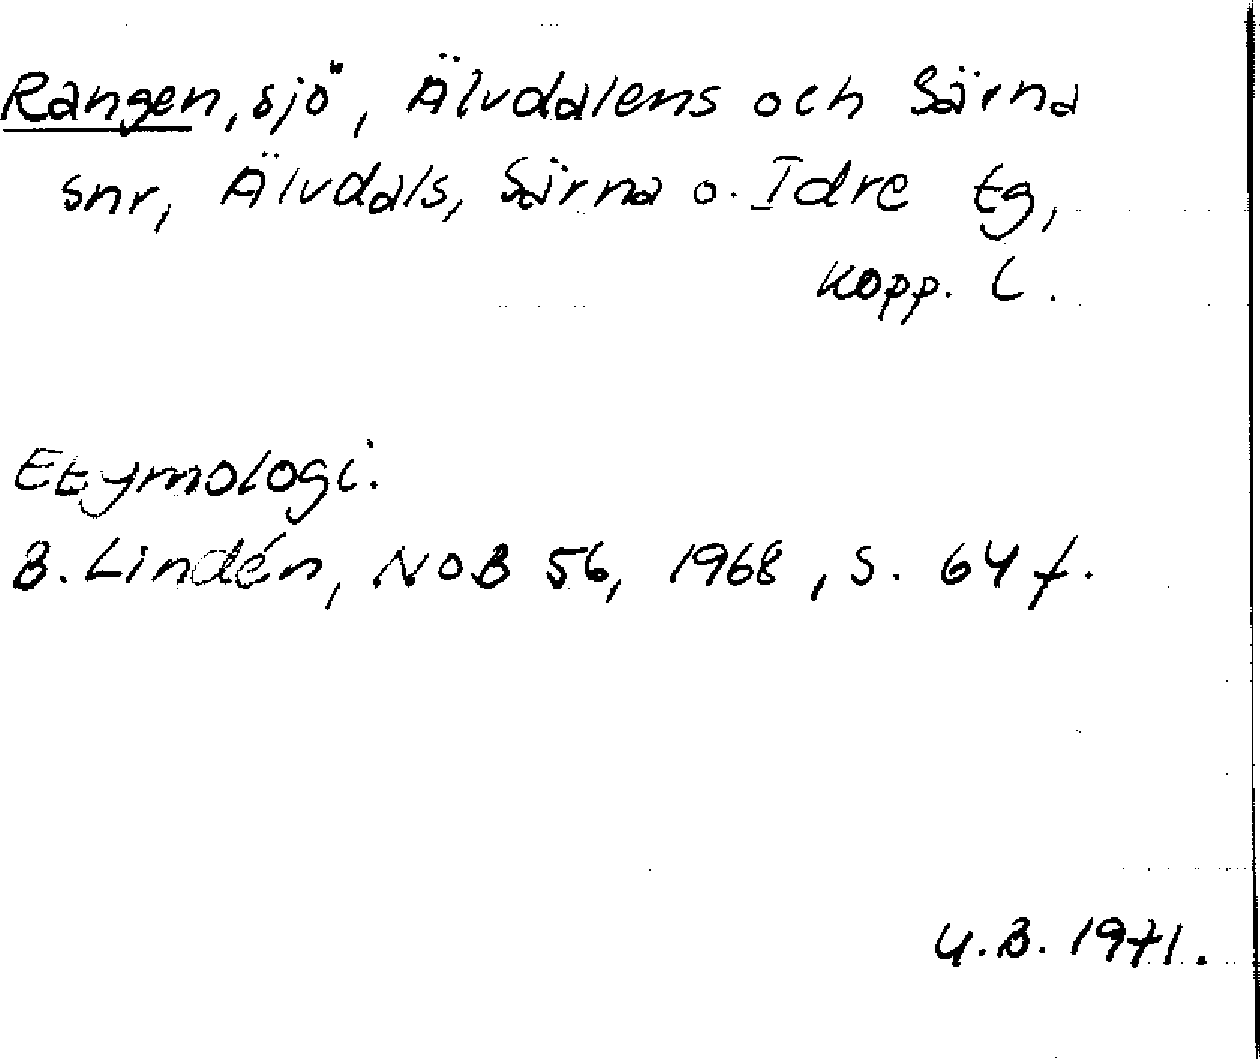 Rangen, sjö, Älvdalens och Särna
snr, Älvdals, Särna o. Idre tg,
Kopp. L.
Etymologi.
B. Lindén, NoB 56, 1968, s. 64 f.
U.B. 1971.